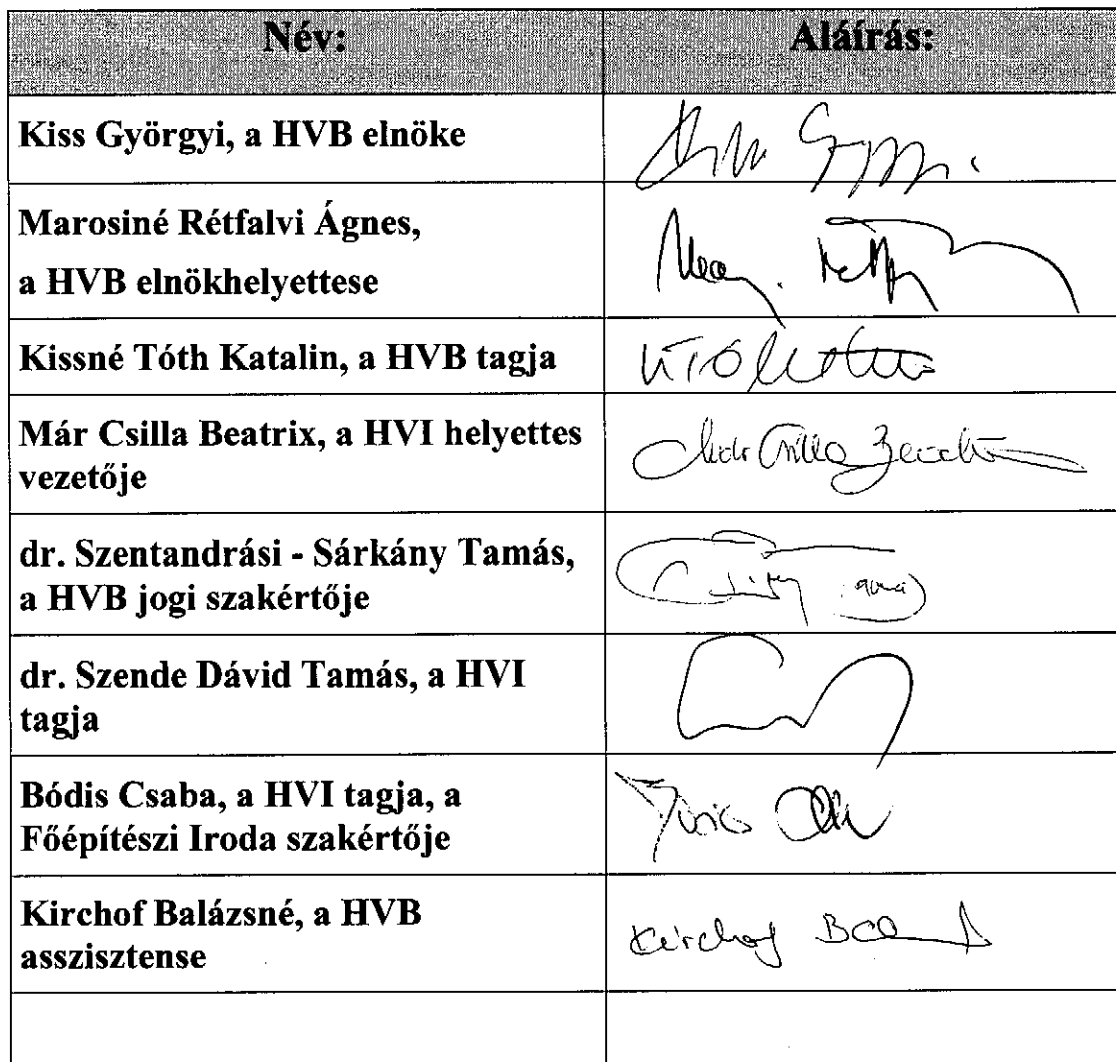 Név: Aláírás:
Kiss Györgyi, a HVB elnöke
Marosiné Rétfalvi Ágnes,
a HVB elnökhelyettese
Kissné Tóth Katalin, a HVB tagja
Már Csilla Beatrix, a HVI helyettes
vezetője
dr. Szentandrási - Sárkány Tamás,
a HVB jogi szakértője
dr. Szende Dávid Tamás, a HVI
tagja
Bódis Csaba, a HVI tagja, a
Főépítészi Iroda szakértője
Kirchof Balázsné, a HVB
asszisztense
Kirchof